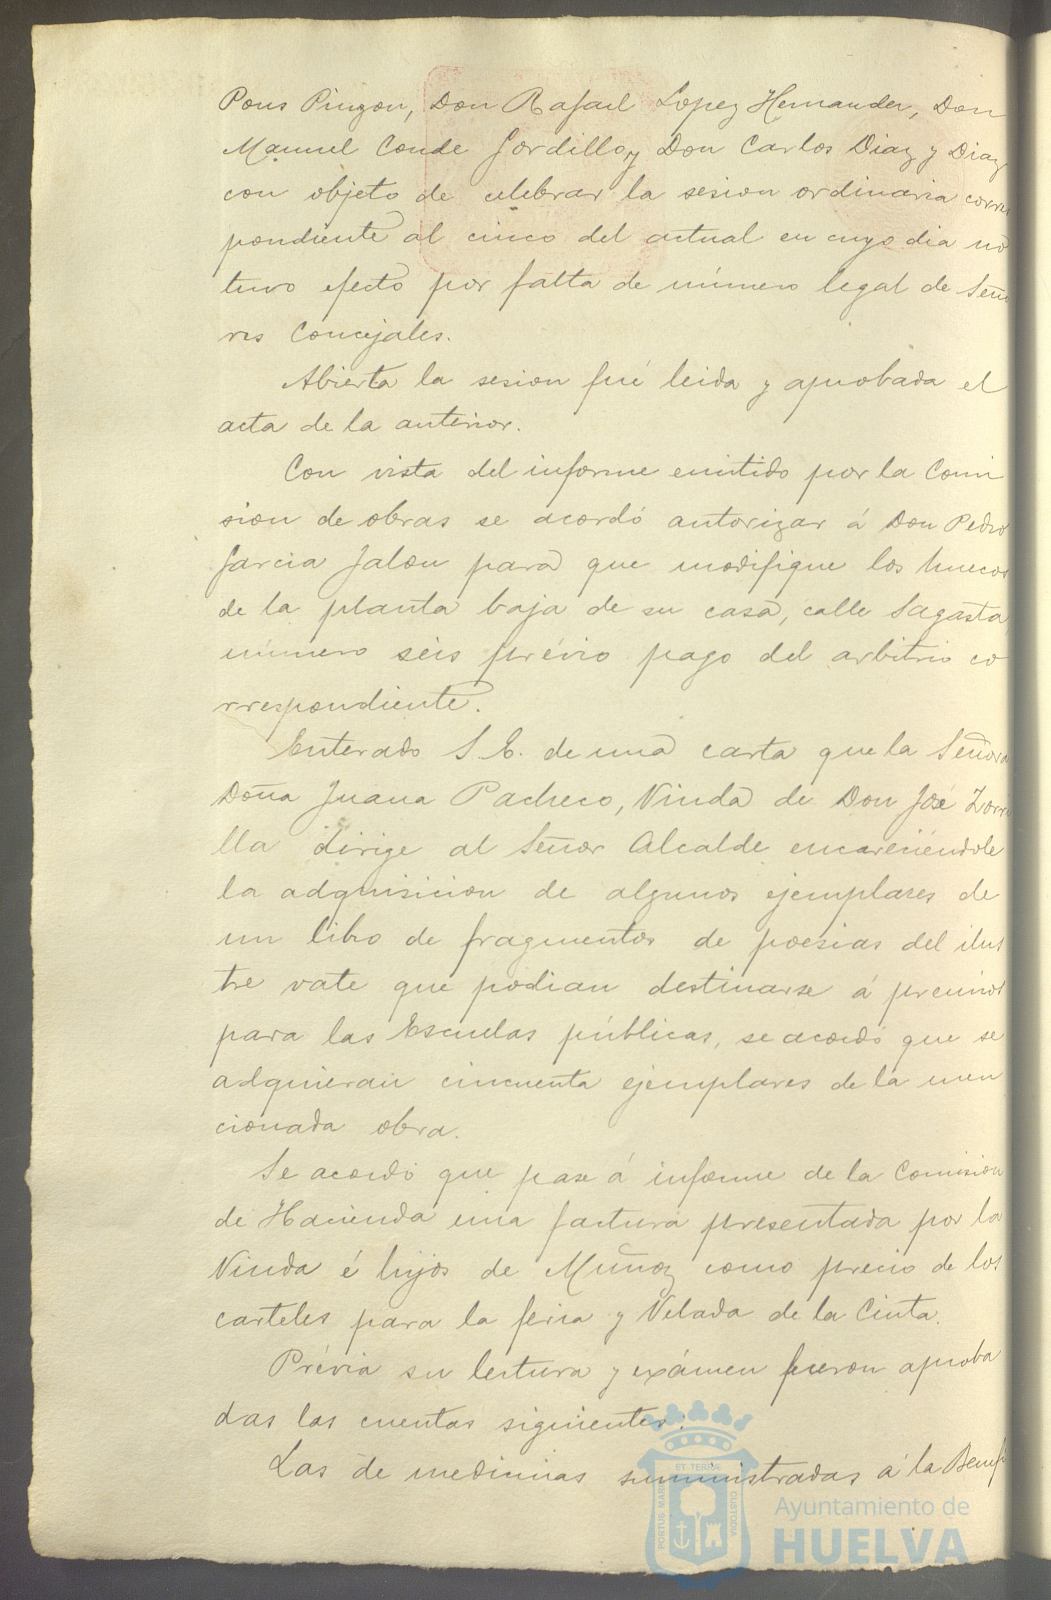 Pons Pinzon, Don Rafael Lopez Hernandez, Don
Manuel Conde Gordillo y Don Carlos Diaz y Diaz
con objeto de celebrar la sesion ordinaria corres
pondiente al cinco del actual en cuyo dia no
tuvo efecto por falta de número legal de Seño
res Concejales.
Abierta la sesion fué leida y aprobada el
acta de la anterior.
Con vista del informe emitido por la Comi
sion de obras se acordó autorizar á Don Pedro
Garcia Jalon para que modifique los huecos
de la planta baja de su casa, calle Sagasta,
número seis prévio pago del arbitrio co
rrespondiente.
Enterado S. E. de una carta que la Señora
Doña Juana Pacheco, Viuda de Don José Zorri
lla dirige al Señor Alcalde encareciéndole
la adquisicion de algunos ejemplares de
un libro de fragmentos de poesias del ilus
tre vate que podian destinarse á premios
para las Escuelas públicas, se acordó que se
adquieran cincuenta ejemplares de la men
cionada obra.
Se acordó que pase á informe de la Comision
de Hacienda una factura presentada por la
Viuda é hijos de Muñoz como precio de los
carteles para la feria y Velada de la Cinta.
Prévia su lectura y exámen fueron aproba
das las cuentas siguientes:
Las de medicinas suministradas á la Benef
PORTUS MARIS
ET TERRAE
CUSTODIA
Ayuntamiento de
HUELVA